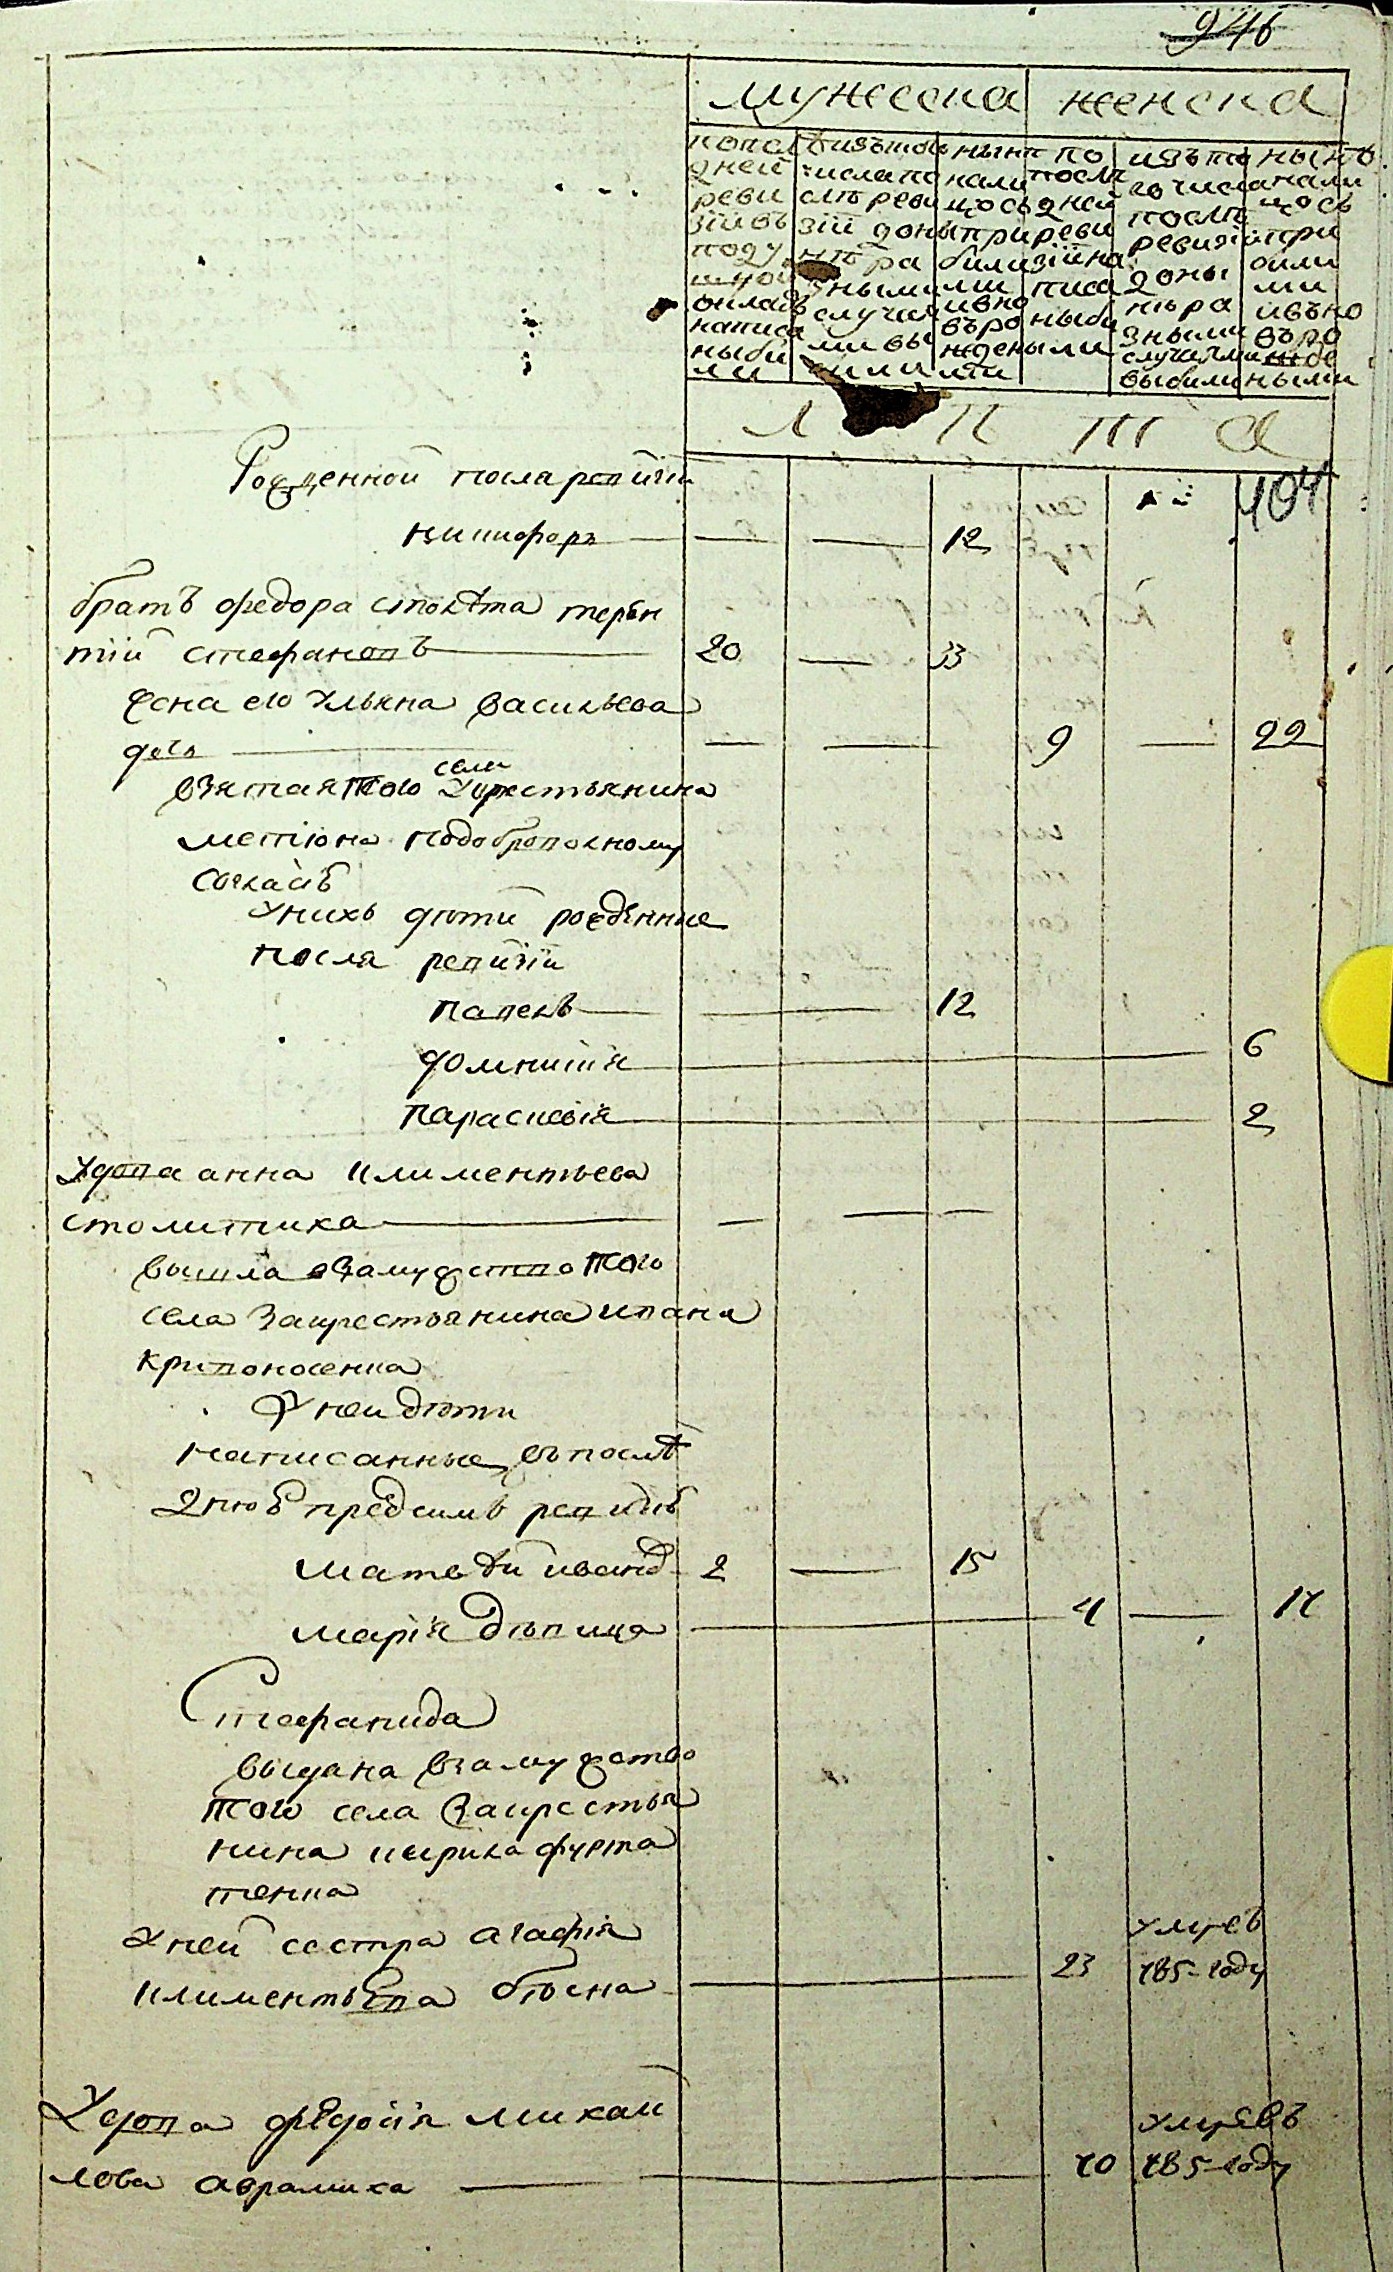 946
мужеска женска
попос
дней
реви
зіи въ
поду
шной
окладъ
написа
ны бы
ли
изътого
числа по
слѣ реви
зіи доны
нѣ ра
зными
случая
ми вы
были
нынѣ
нали
цо съ
при
были
ми
и вно
въ ро
жденыли
ми
по
послѣ
дней
реви
зіи на
писа
ны бы
ли
изъ то
го числа
послѣ
ревизіи
доны
нѣ ра
зными
случаями
выбили
нынѣ
нали
цо съ
при
были
ми
ивъно
въ ро
жде
ными
Л П Т А
404
Рожденной посла ревизіи
никифоръ 12
братъ федора столѣта терен
тій стефановъ 20 33
жена его Ульяна васильева
дочь 9 22
взятая того села У крестьянина
метіона подоброволному
согласію
У нихъ дѣти рожденные
после ревизіи
павелъ 12
домникія 6
параскевія 2
Удова анна климентьева
столитиха
вышла взамужство того
села за крестьянина ивана
кривоносенка
У неи дѣти
написанные въ послѣ
днюю предсимъ ревизію
матвѣй ивановъ 2 15
марія дѣвица 4 17
Стефанида
выдана взамужство
того села За крестья
нина кирила фурта
тенка
У ней сестра агафія
климентьева бѣсна 23
умре въ
785 году
Удова федосія михаи
лова аврамиха 70
умре въ
785 году